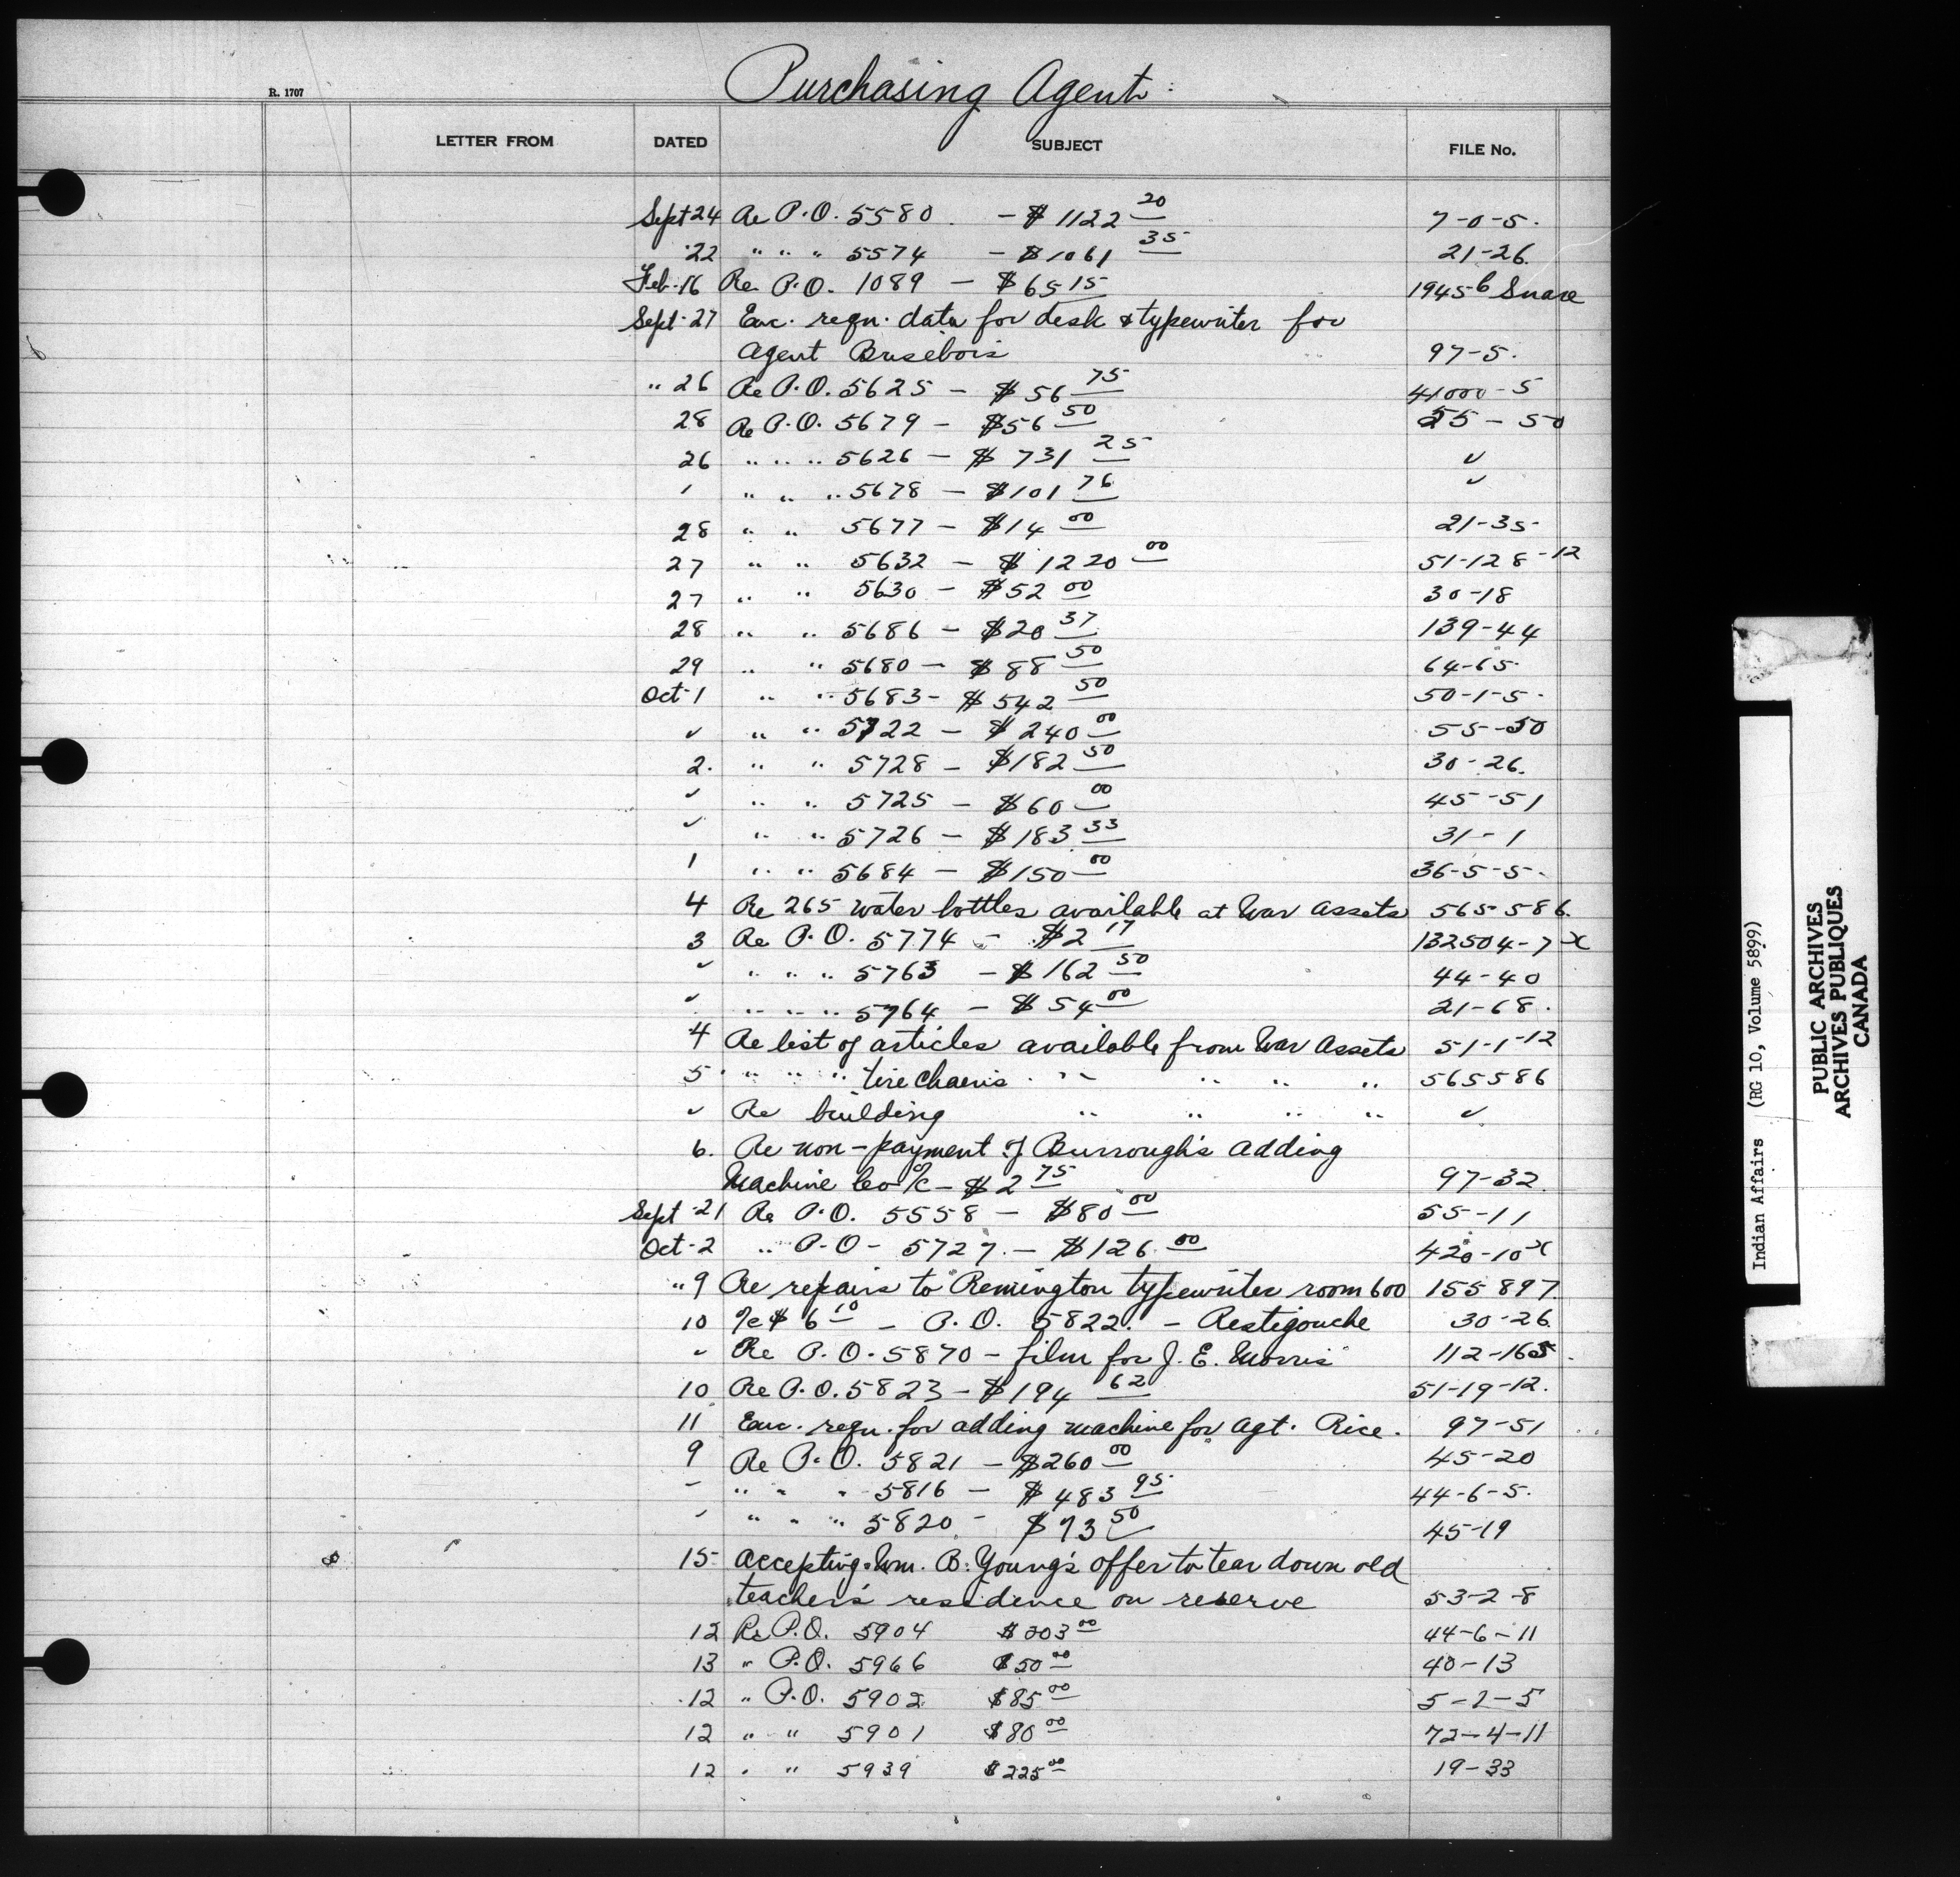 Purchasing Agent
R. 1707
LETTER FROM DATED SUBJECT FILE No.
Sept 24 Re P.O. 5580 - $1122 20 7-0-5.
22 " " " 5574 - $1061 35 21-26.
Feb. 16 Re P.O. 1089 - $65 15 1945 6 Snare
Sept. 27 Enc. reqn. data for desk & typewriter for
Agent Brisebois 97-5.
" 26 Re P.O. 5625 - $56 75 41000-5
28 Re P.O. 5679 - $56 50 55-50
26 " " " 5626 - $731 25 ✓
' " " " 5678 - $101 76 ✓
28 " " 5677 - $14 00 21-35
27 " " 5632 - $1220 00 51-128-12
27 " " 5630 - $52 00 30-18
28 " " 5686 - $20 37 139-44
29 " " 5680 - $88 50 64-65
Oct 1 " " 5683 - $542 50 50-1-5.
✓ " " 5722 - $240 00 55-50
2. " " 5728 - $182 50 30-26.
✓ " " 5725 - $60 00 45-51
✓ " " 5726 - $183 33 31-1
1 " " 5684 - $150 00 36-5-5.
4 Re 265 water bottles available at War Assets 565586.
3 Re P.O. 5774 - $2 17 132504-7-x
✓ " " " 5763 - $162 50 44-40
✓ " " " 5764 - $54 00 21-68.
4 Re list of articles available from War Assets 51-1-12
5 " " " " tire chains " " " " " 565586
✓ Re building " " " " ✓
6. Re non-payment of Burrough's Adding
Machine Co a/c - $2 75 97-32.
Sept. 21 Re P.O. 5558 - $80 00 55-11
Oct. 2 " P.O - 5727. - $126.00 420-10-x
" 9 Re repairs to Remington typewriter room 600 155897.
10 a/c $6 10 - P.O. 5822. - Restigouche 30-26.
✓ Re P.O. 5870 - film for J. E. Morris 112-165.
10 Re P.O. 5823 - $194 62 51-19-12.
11 Enc. reqn. for adding machine for Agt. Rice. 97-51
9 Re P.O. 5821 - $260 00 45-20
" " " " 5816 - $483 95 44-6-5.
" " " " 5820 - $73 50 45-19
15 Accepting Wm. B. Young's offer to tear down old
teacher's residence on reserve 53-2-8
12 Re P.O. 5904 $203 00 44-6-11
13 " P.O. 5966 $50 00 40-13
12 " P.O. 5902 $85 00 5-2-5
12 " " 5901 $80 00 72-4-11
12 " " 5939 $225 00 19-33
Indian Affairs (RG 10, Volume 5899)
PUBLIC ARCHIVES
ARCHIVES PUBLIQUES
CANADA